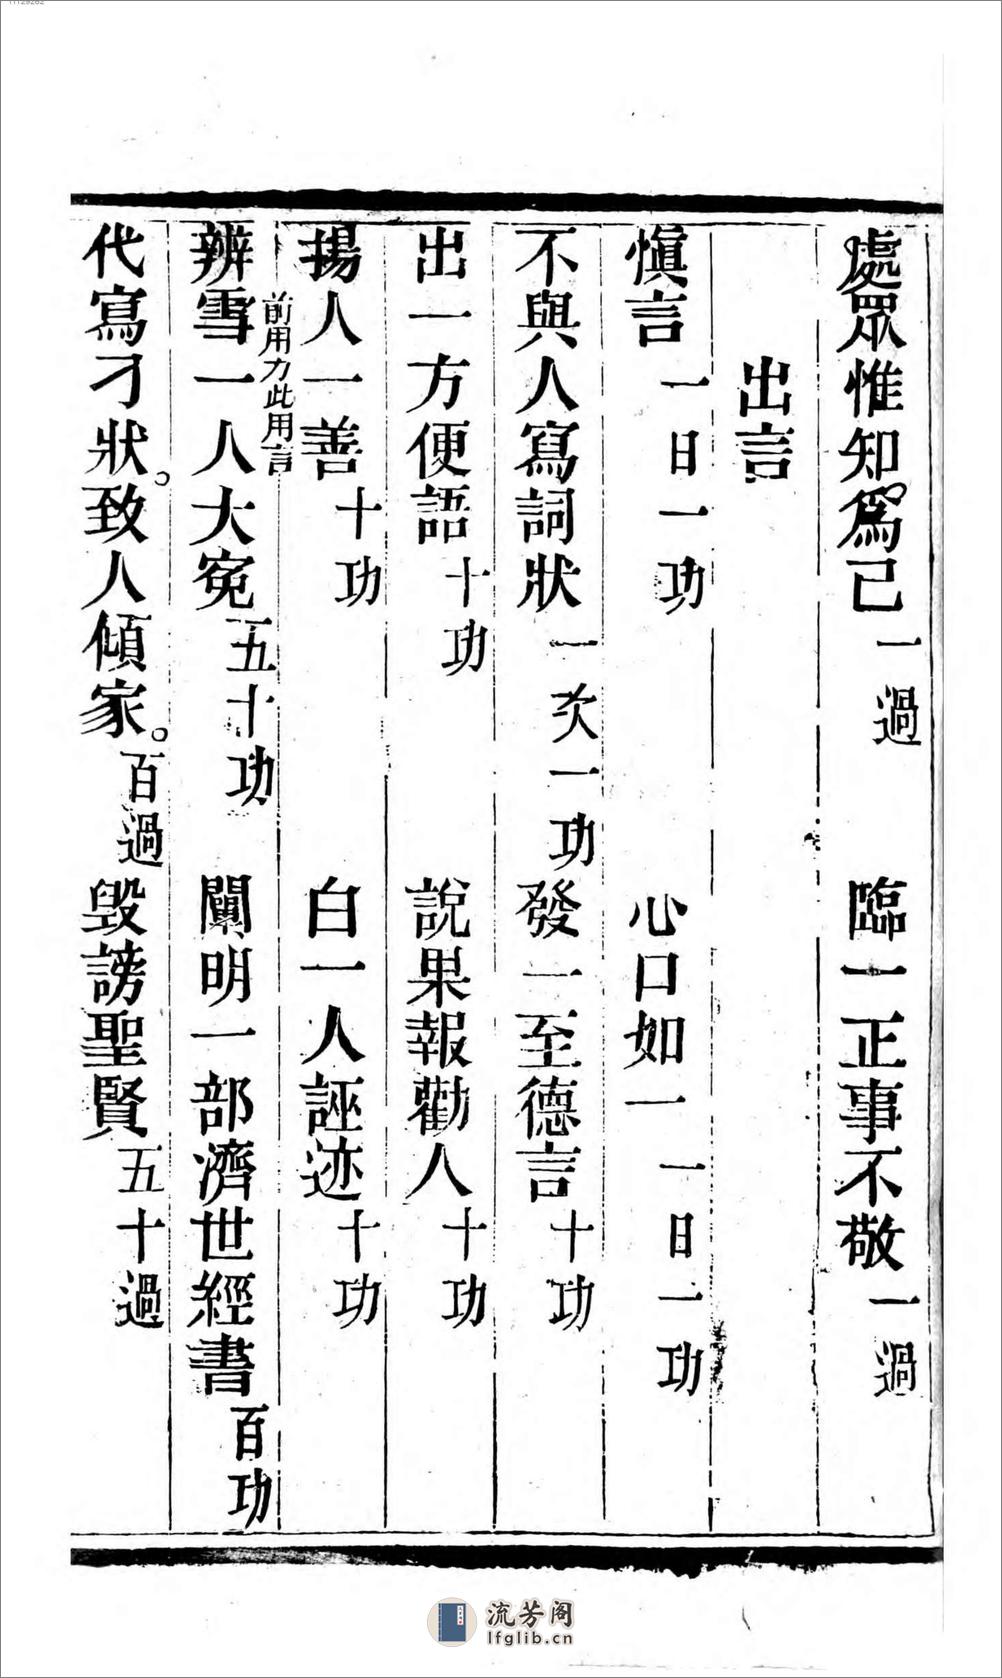 處眾惟知爲己 一過 臨一正事不敬 一過
出言
慎言 一日一功 心口如一 一日一功
不與人寫詞狀 一次一功 發一至德言 十功
出一方便語 十功 說果報勸人 十功
揚人一善 十功 白一人誣迹 十功
辨雪一人大寃 前用力此用言 五十功 闡明一部濟世經書 百功
代寫刁狀。致人傾家。 百過 毀謗聖賢 五十過
流芳阁
lfglib.cn